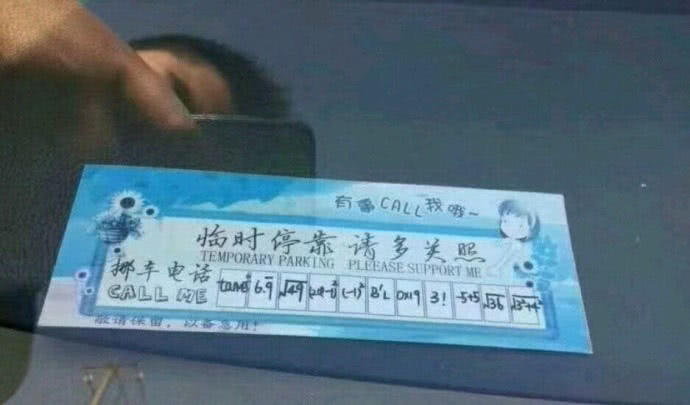 有事CALL我哦~
临时停靠 请多关照
TEMPORARY PARKING PLEEASE SUPPORT ME
挪车电话
CALL ME
tan45° 6.9̄ √49 (-1)² 3! -5+5 √36 √3²+4²
敬请保留，以备急用！